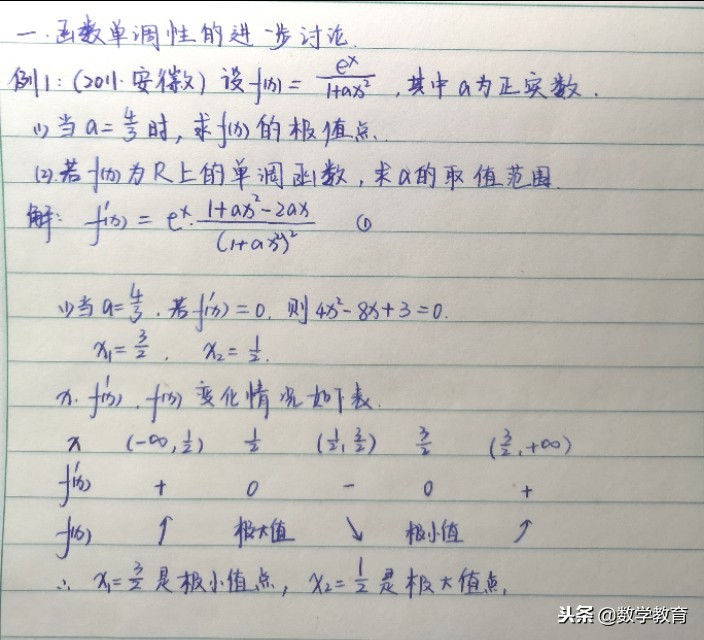 一.函数单调性的进一步讨论.
例1:(2011·安徽文)设f(x)=e^x/(1+ax²),其中a为正实数.
(1)当a=4/3时,求f(x)的极值点.
(2)若f(x)为R上的单调函数,求a的取值范围.
解: f'(x)=e^x·(1+ax²-2ax)/(1+ax²)² ①
(1)当a=4/3.若f'(x)=0.则4x²-8x+3=0.
x₁=3/2, x₂=1/2.
x.f'(x).f(x)变化情况如下表.
x (-∞,1/2) 1/2 (1/2,3/2) 3/2 (3/2,+∞)
f'(x) + 0 - 0 +
f(x) ↑ 极大值 ↘ 极小值 ↑
∴ x₁=3/2是极小值点, x₂=1/2是极大值点.
头条 @数学教育